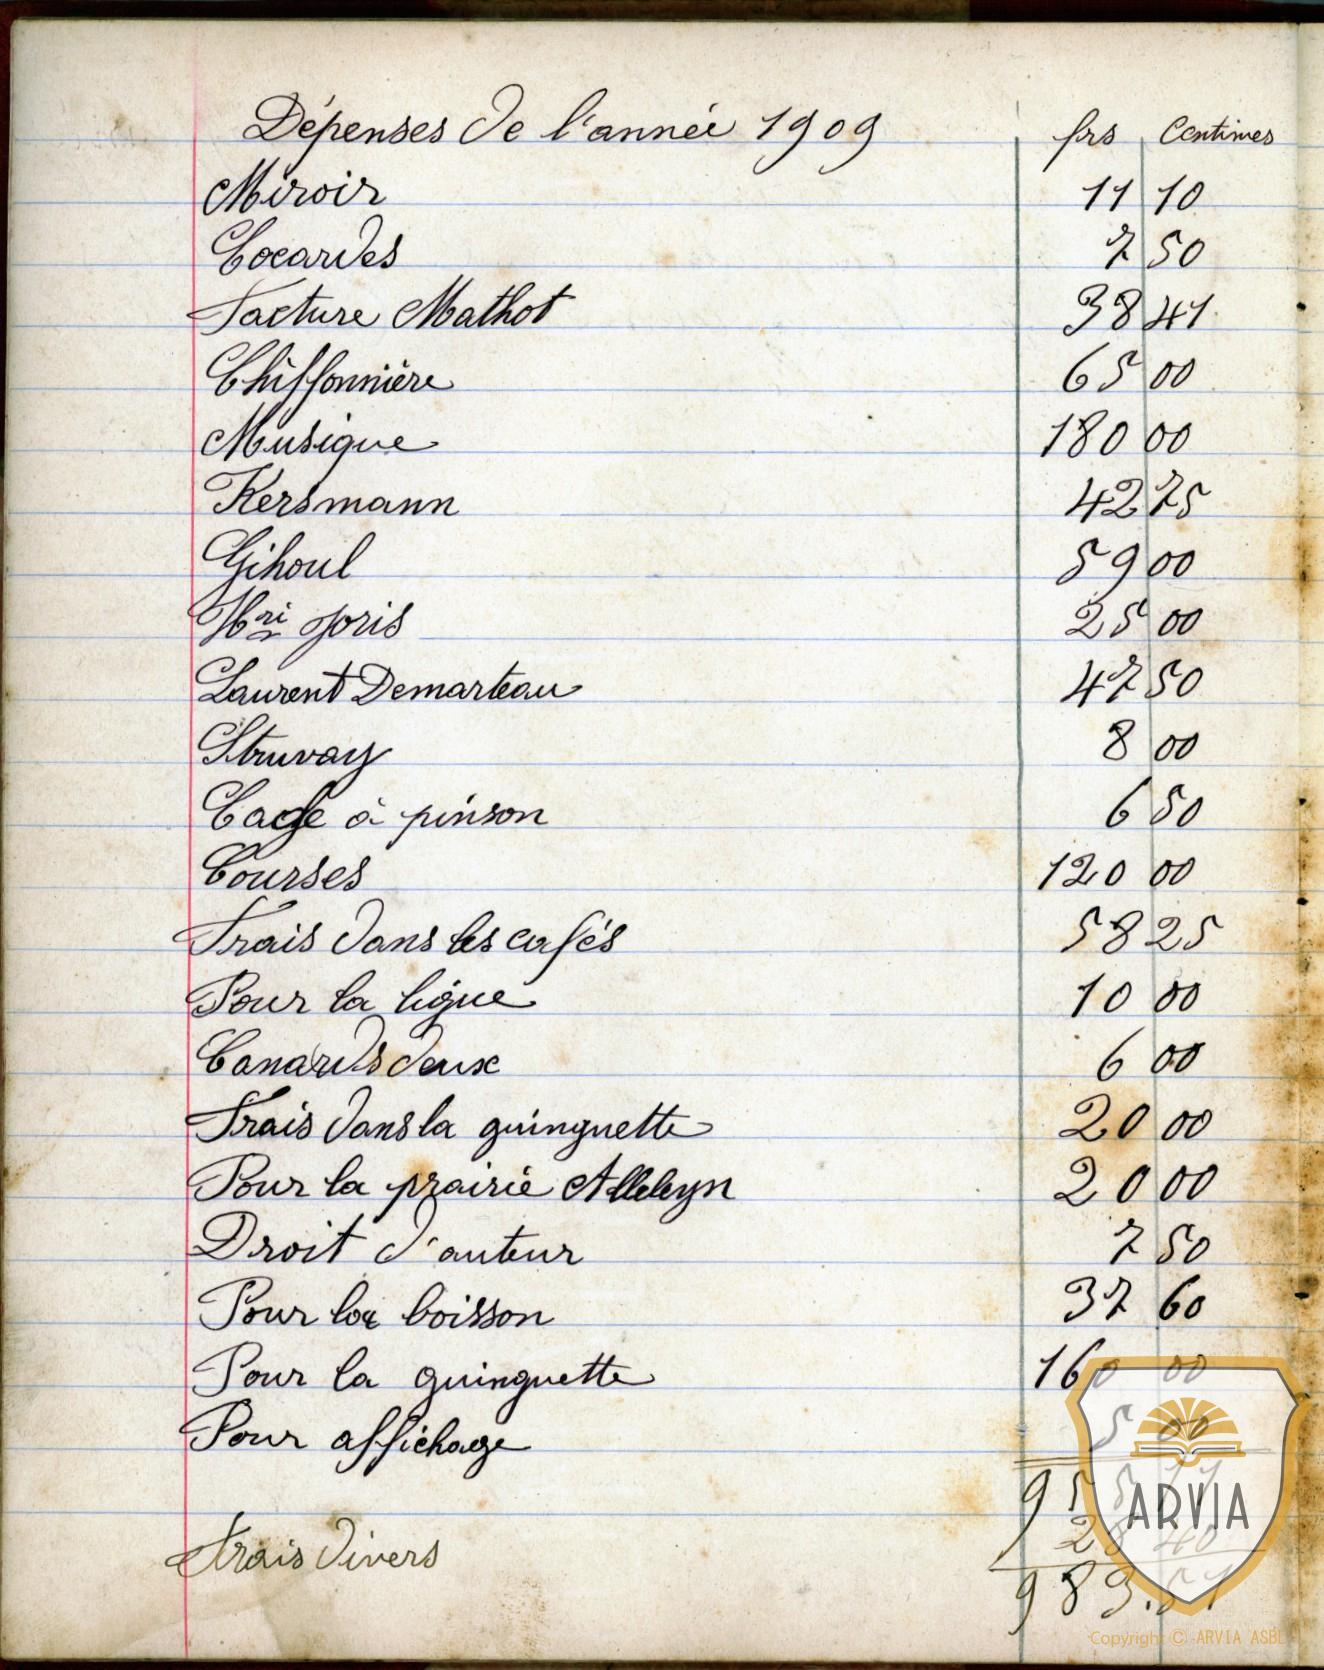 Dépenses de l'année 1909 frs Centimes
Miroir 11 10
Cocardes 7 50
Facture Mathot 38 41
Chiffonnière 65 00
Musique 180 00
Kersmann 42 75
Gihoul 59 00
Hri Joris 25 00
Laurent Demarteau 47 50
Struvay 8 00
Cage à pinson 6 50
Courses 120 00
Frais dans les cafés 58 25
Pour la ligue 10 00
Canards deux 6 00
Frais dans la guinguette 20 00
Pour la prairie 20 00
Droit d'auteur 7 50
Pour la boisson 37 60
Pour la guinguette 160 00
Pour affichage 5 00
955 11
Frais divers 28 40
983.51
ARVIA
Copyright © ARVIA ASBL